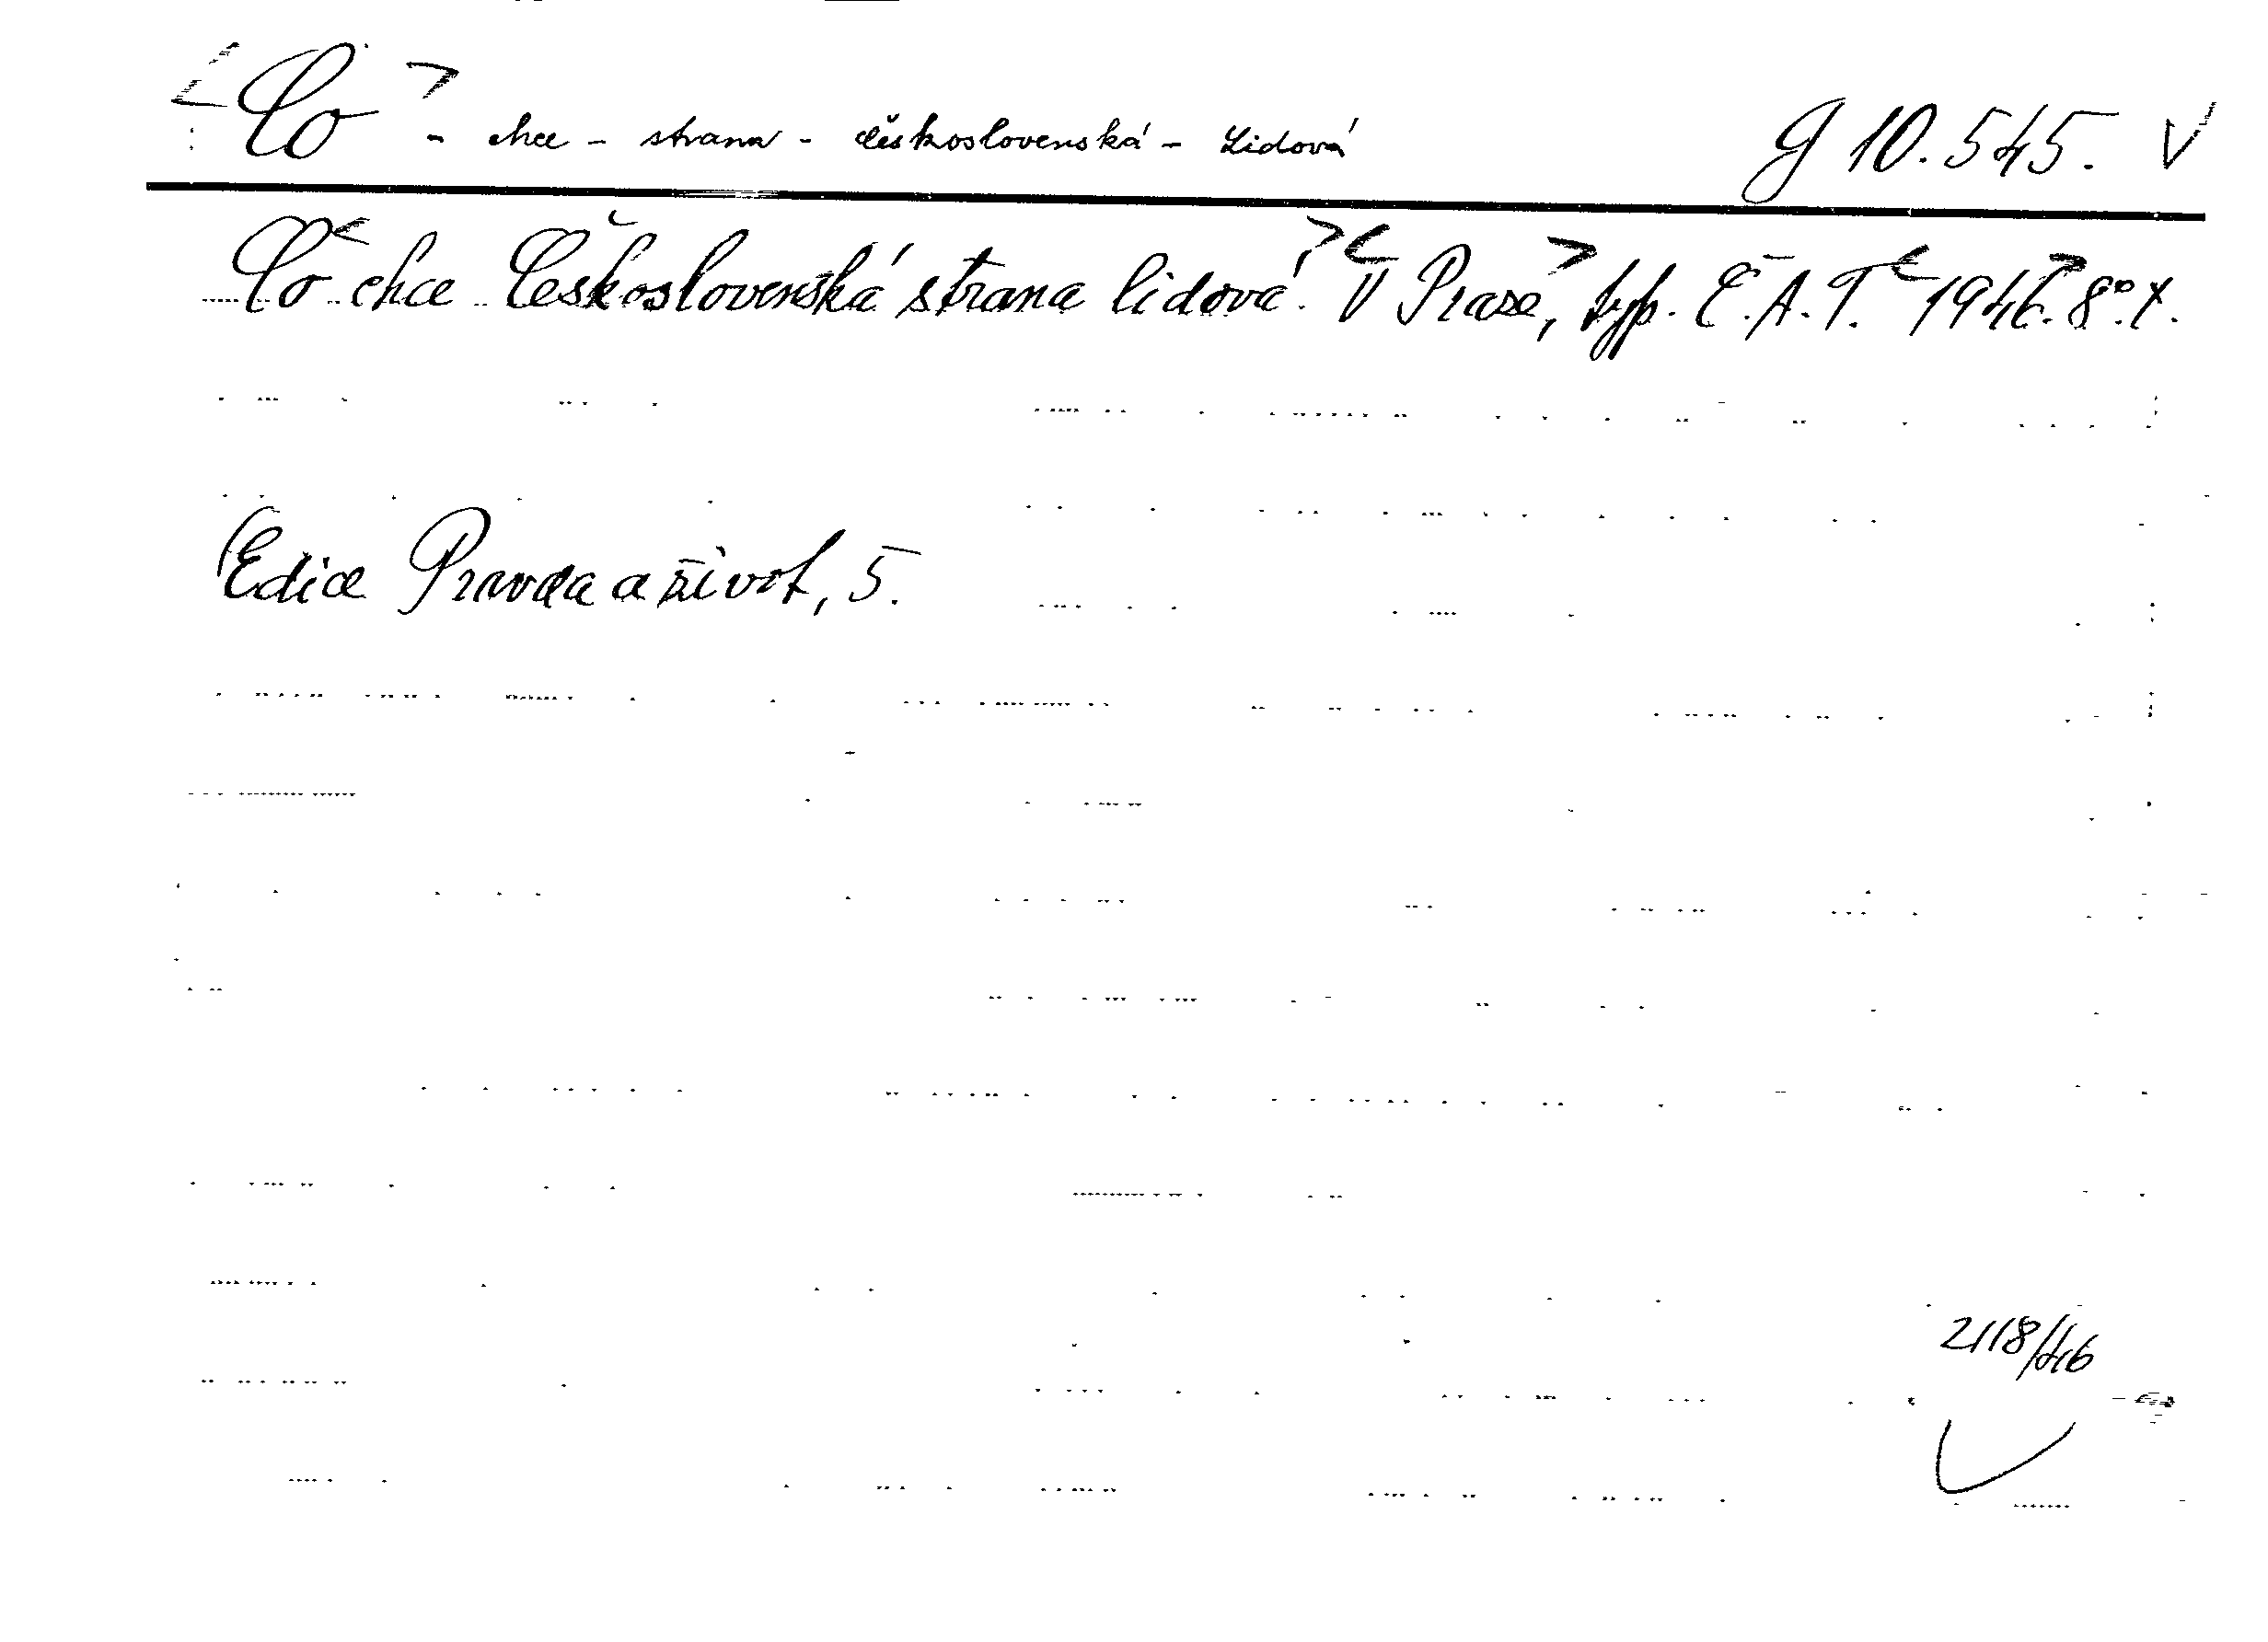 Co - chce - strana - československá - lidová g 10.545. V
Co chce Československá strana lidová? V Praze, typ. Č.A.T. 1946. 8°.
(Edice Pravda a život, 5.
2118/46